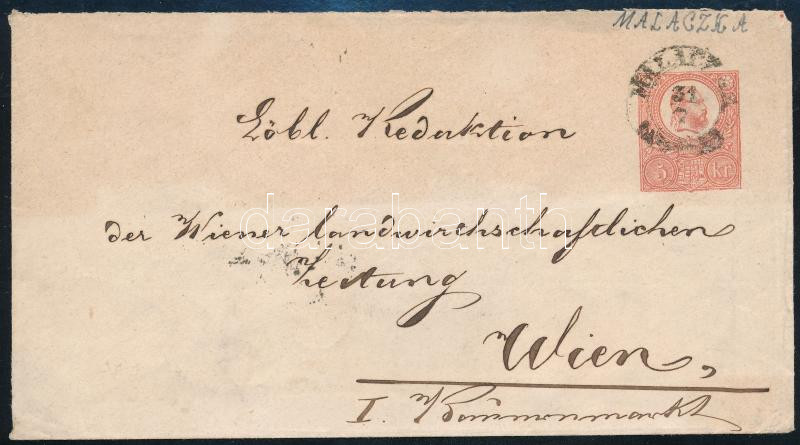 MALACZKA
MALACZKA
31
5 kr
Löbl. Redaktion
darabanth
der Wiener landwirthschaftlichen
Zeitung
Wien,
I.